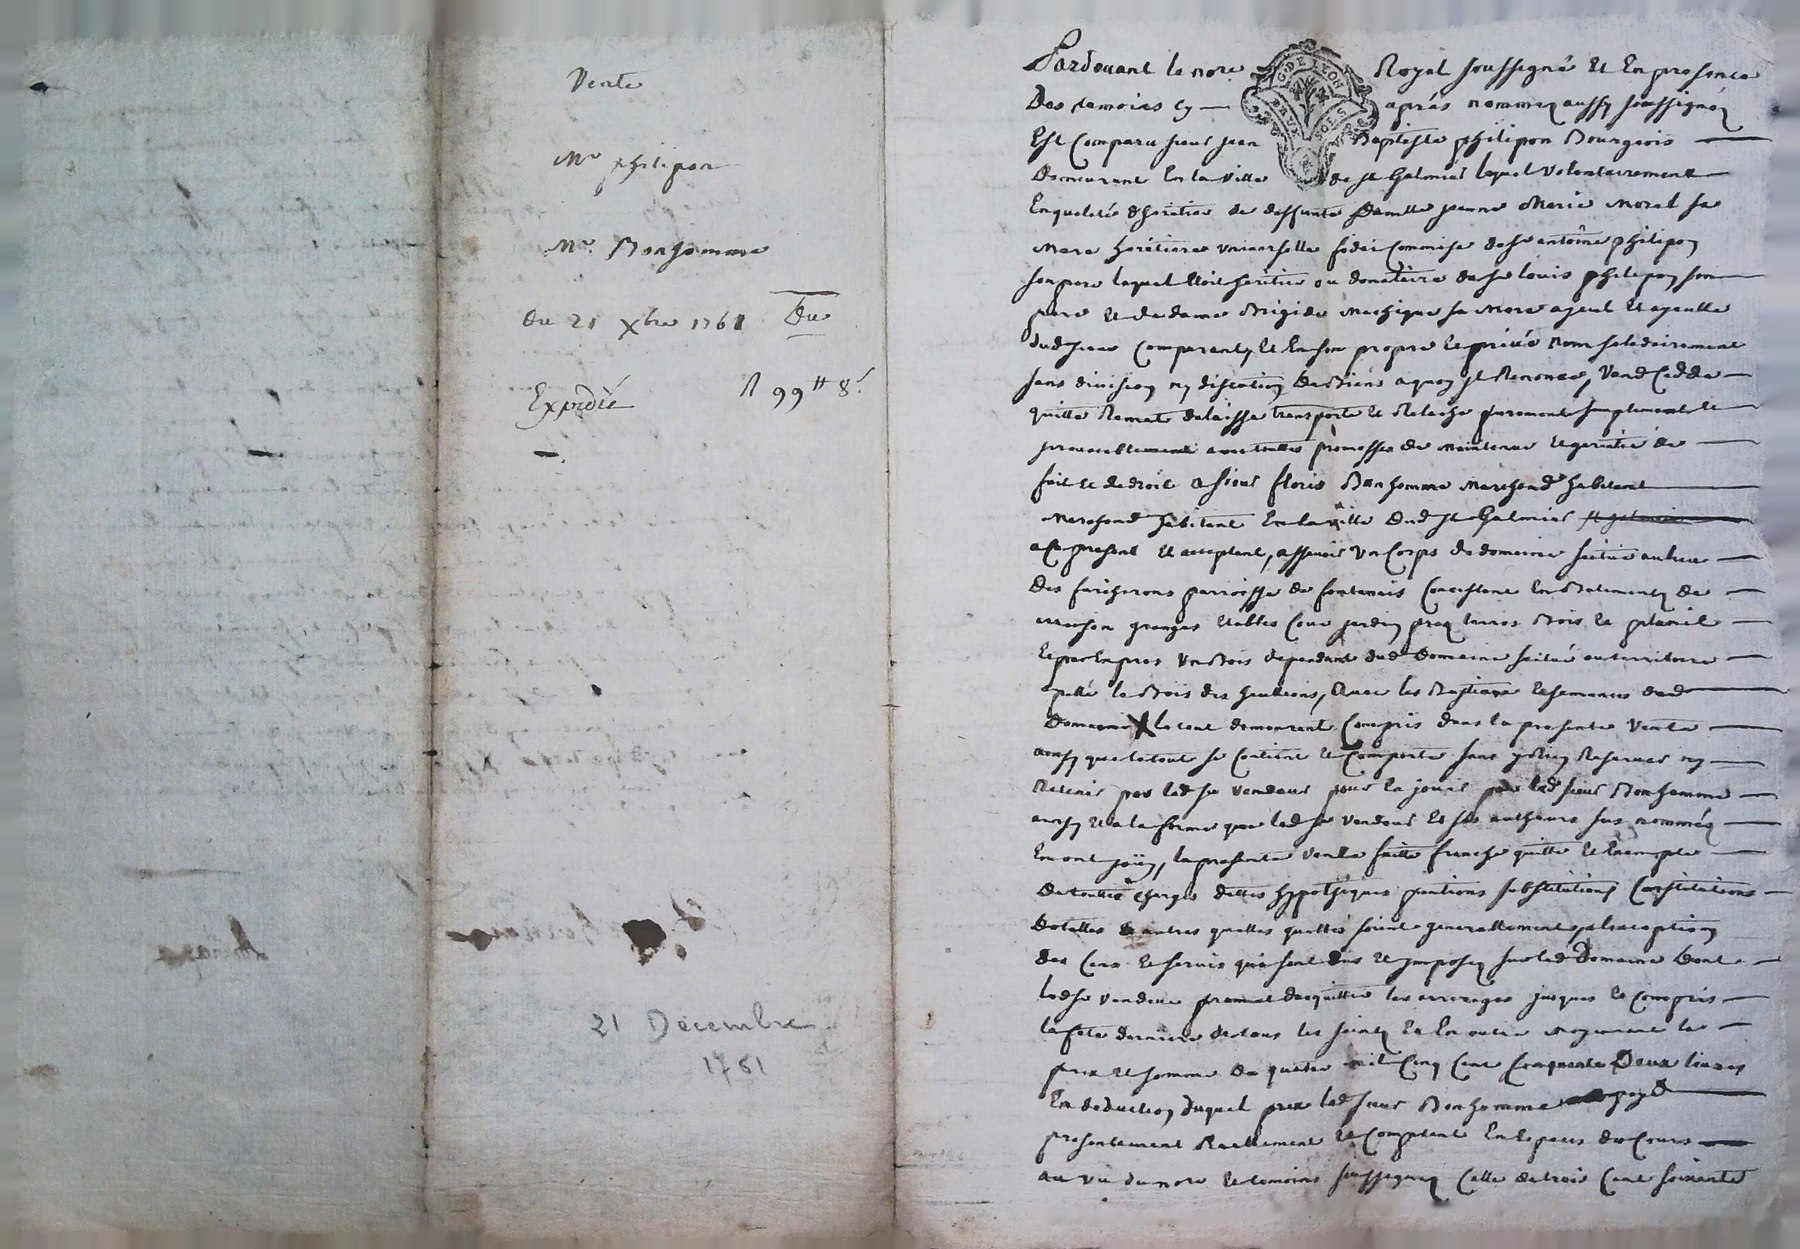 Vente
Mr philipon
Mr Bonhomme
Du 21 xbre 1761 Due
Expedié R 99# 8s
21 Décembre
1761
Pardevant le nore Royal soussigné Et En presence
Des temoins cy aprés nommez aussy soussignéz
Est Comparu sieur jean Baptiste philipon Bourgeois
Demeurant En la ville de st Galmier lequel volontairement
En qualité d'héritier de deffunte Demlle jeanne Marie Morel sa
Mere heritiere universelle fidei Commise de sr antoine philipon
son pere lequel Etoit heritier ou donataire de sr louis philipon son
pere Et de dame Brigide sa Mere ayeul Et ayeulle
dud sieur Comparant, Et En son propre Et privé nom solidairement
sans division ny discution de Biens a quoy il Renonce, Vend Cedde
quitte Remet delaisse transporte Et Relache purement simplement Et
jrrevocablement avec touttes promesses de maintenue Et garentie de
fait Et de droit a sieur floris Bonhomme Marchand habitant
Marchand habitant En la ville Dud st Galmier st galmier
a Ce present Et acceptant, assavoir Un Corps de domaine scitué au lieu
des paroisse de fontanais Concistant En Batimentz de
maison granges Etables Cour jardin prez terres Bois Et
Et par Exprés Un Bois dependant dud Domaine scitué au territoire
apellé le Bois des, Avec les Bestiaux Et semances dud
Domaine X le tout demeurant Compris dans la presente Vente
ainsy que le tout se Contient Et Comporte sans y Rien Reserver ny
Retenir par led sr vendeur pour En jouir par led sieur Bonhomme
ainsy Et a la forme que led sr vendeur Et ses autheurs sus nomméz
En ont joüy, la presente vente faitte franche quitte Et Exempte
De touttes charges dettes hypotheques pentions substitutions Constitutions
Dotalles & autres quelles quelles soient generallement, a l'exception
des Cens Et servis qui sont dus Et jmposez sur led Domaine Dont
led sr vendeur promet d'acquitter les arrerages jusques Et Compris
la fete derniere de tous les saints Et En outre Moyenant le
prix Et somme de quatre mil Cinq Cent Cinquante Deux livres
En deduction duquel prix led sieur Bonhomme a payé
presentement Reellement Et Comptant En Especes de Cours
au vu du nore Et temoins soussignez Celle de trois Cent soixante